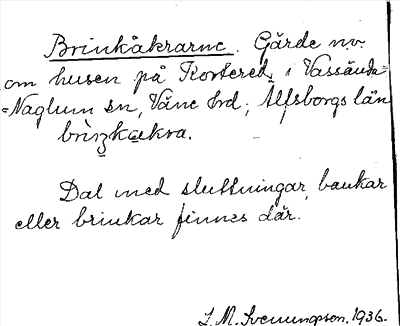 Brinkåkrarne. Gärde n.v.
om husen på Kortered, i Vassända-
=Naglum sn, Väne hd; Älfsborgs län
brìŋkækra.
Dal med sluttningar, bankar
eller brinkar finnes där.
L. M. Svenungsson, 1936.